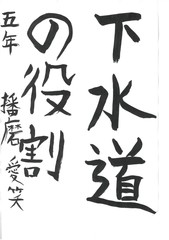 下水道
の役割
五年 播磨愛笑